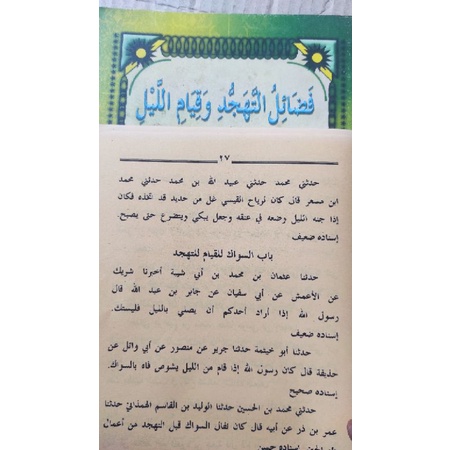 فَضَائِلُ التَّهَجُّدِ وَقِيَامِ اللَّيْلِ
٢٧
حدثني محمد حدثني عبيد الله بن محمد حدثني محمد
ابن مسعر قال كان لرياح القيسي غل من حديد قد اتخذه فكان
إذا جنه الليل وضعه في عنقه وجعل يبكي ويتضرع حتى يصبح.
إسناده ضعيف
باب السواك للقيام للتهجد
حدثنا عثمان بن محمد بن أبي شيبة أخبرنا شريك
عن الأعمش عن أبي سفيان عن جابر بن عبد الله قال
رسول الله إذا أراد أحدكم أن يصلي بالليل فليستك.
إسناده ضعيف
حدثنا أبو خيثمة حدثنا جرير عن منصور عن أبي وائل عن
حذيفة قال كان رسول الله إذا قام من الليل يشوص فاه بالسواك.
إسناده صحيح
حدثني محمد بن الحسين حدثنا الوليد بن القاسم الهمذاني حدثنا
عمر بن ذر عن أبيه قال كان يقال السواك قبل التهجد من أعمال
إسناده حسن